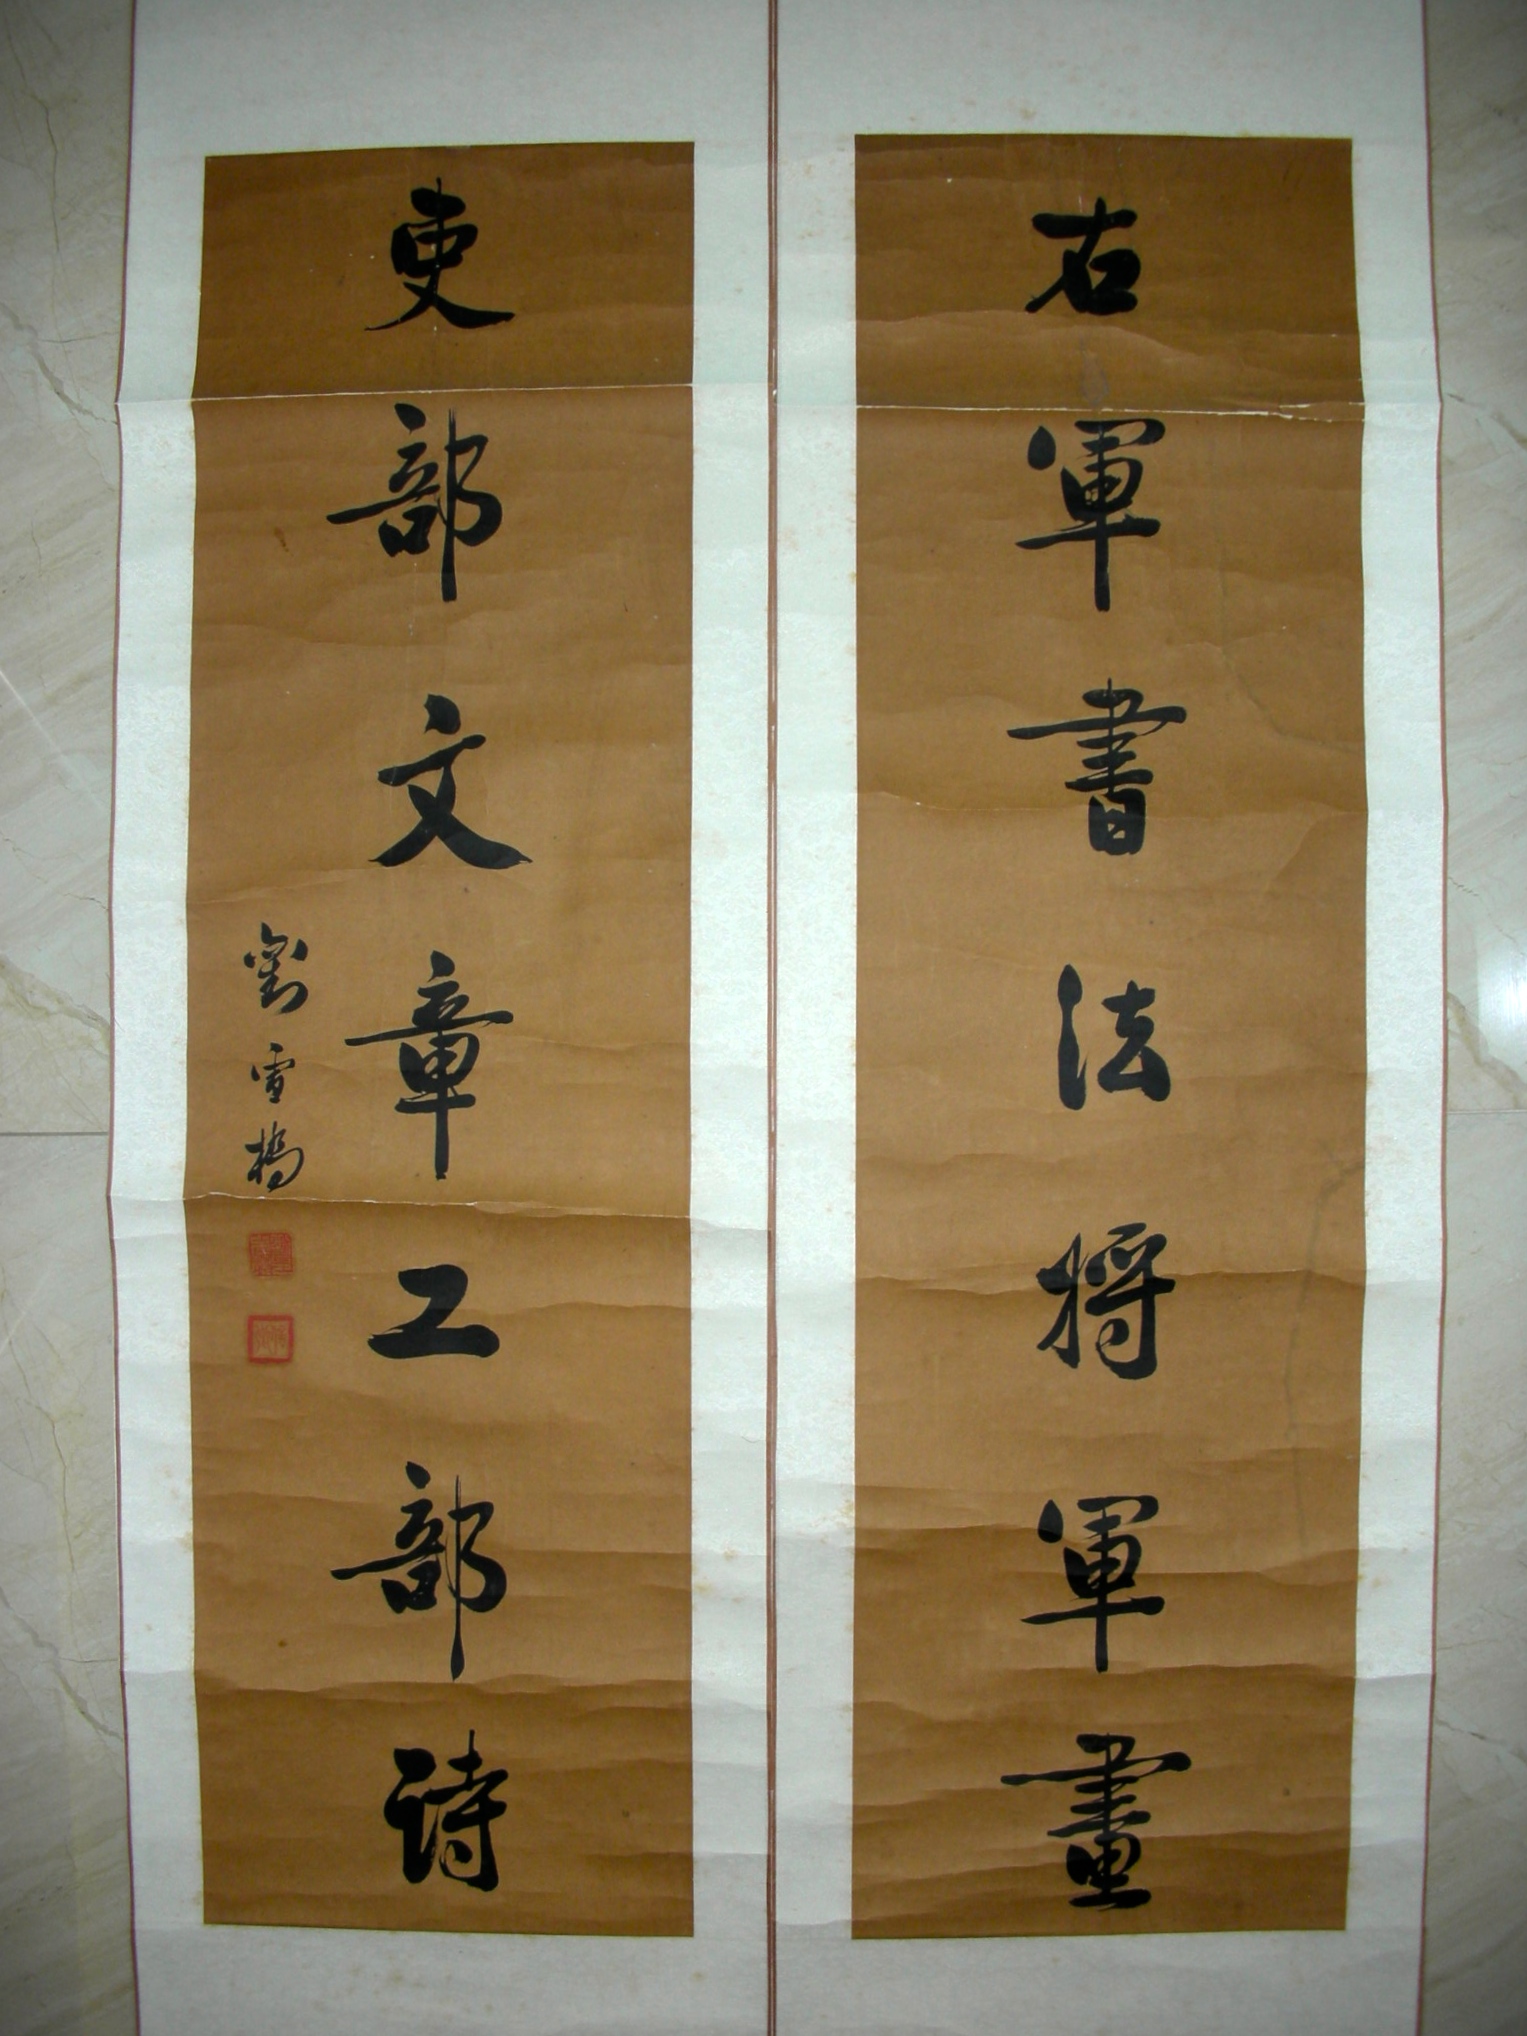 右軍書法将軍畫
吏部文章工部詩
劉雪橋